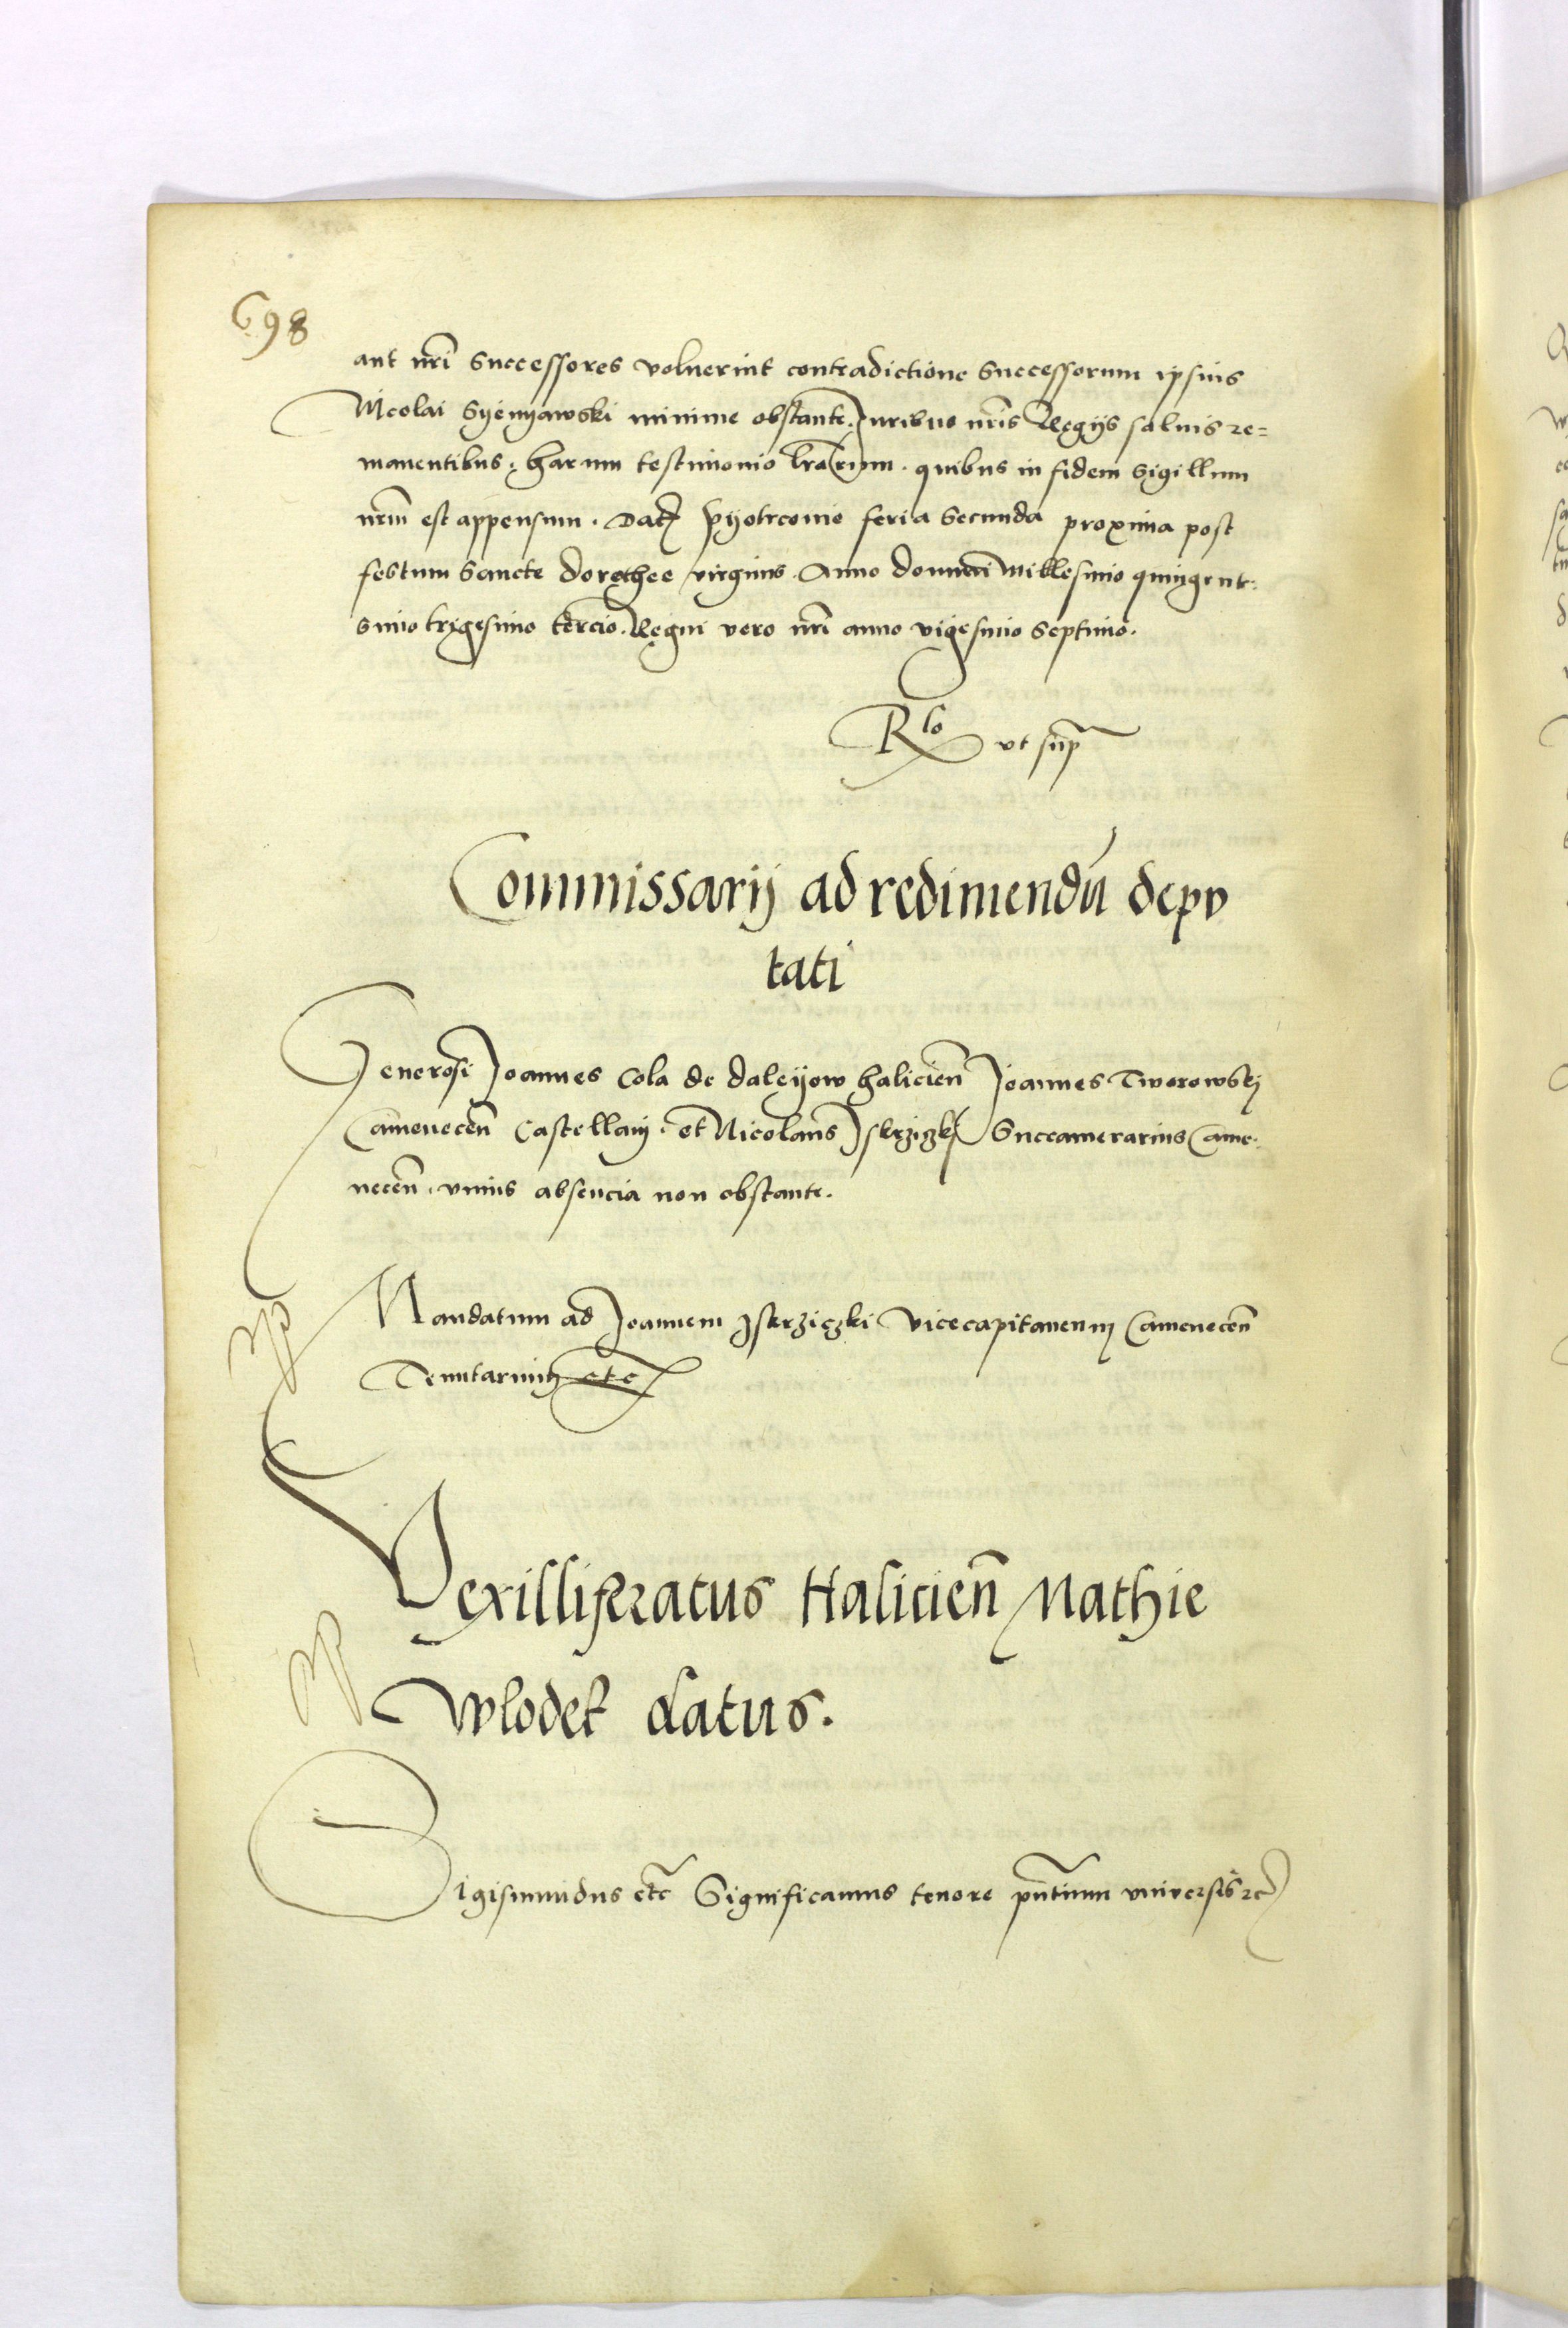 698
aut nri Successores voluerint contradictione Successorum ipsius
Nicolai Syenyawski minime obstante. Juribus nris Regijs saluis re=
manentibus. harum testimonio lrarum. quibus in fidem Sigillum
nrm est appensum. Dat Pyotrconie feria Secunda proxima post
festum Sancte Dorothee virginis. Anno domini Millesimo quingente:
simo trigesimo tercio. Regni vero nri anno vigesimo Septimo.
Rlo vt sup
Commissarij ad redimendu depu
tati
Generosi Joannes Cola de Daleyow halicien Joannes Tworowskj
Camenecen Castellanj. et Nicolaus Jskrziczkj Succamerarius Came:
necen. vnius absencia non obstante.
Mandatum ad Joannem Jskrziczki Vicecapitaneum Camenecen
Tenutarium etc
Vexilliferatus Halicien Mathie
Wlodek datus.
Sigismundus etc Significamus tenore pntium vniuersis etc